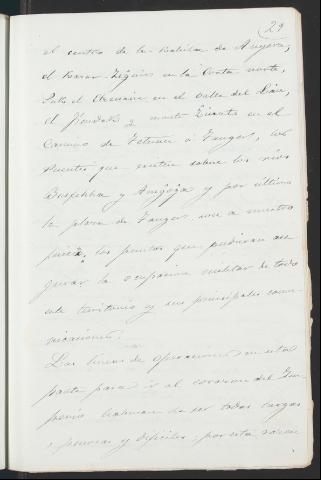 29
el centro de la Kabila de Anyera,
el Kasar-Zeguir en la Costa norte,
en el valle del
el Fondak y monte en el
Camino de Tetuan á Tanger, los
Puentes que existen sobre los rios
Busfekha y y por último
la plaza de Tanger son a nuestro
juicio, los puntos que pudieran ase
gurar la ocupacion militar de todo
este territorio y sus principales comu
nicaciones.
Las lineas de operaciones en esta
parte para ir al corazon del Im
perio habrian de ser todas largas
penosas y dificiles; por esta razon